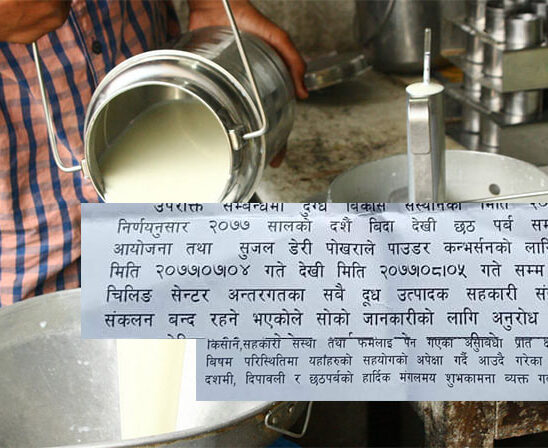 उपरोक्त सम्बन्धमा दुग्ध विकास संस्थानको मिति
निर्णयनुसार २०७७ सालको दशैं बिदा देखी छठ पर्व
आयोजना तथा सुजल डेरी पोखराले पाउडर कन्भर्सनको
मिति २०७७।०७।०४ गते देखी मिति २०७७।०८।०५ गते सम्म
चिलिङ सेन्टर अन्तरगतका सबै दूध उत्पादक सहकारी
संकलन बन्द रहने भएकोले सोको जानकारीको लागि अनुरोध
किसान,सहकारी संस्था तथा फर्मलाई पर्न गएको असुविधा प्रति
बिषम परिस्थितिमा यहाँहरुको सहयोगको अपेक्षा गर्दै आउदै गरेका
दशमी, दिपावली र छठपर्वको हार्दिक मंगलमय शुभकामना व्यक्त